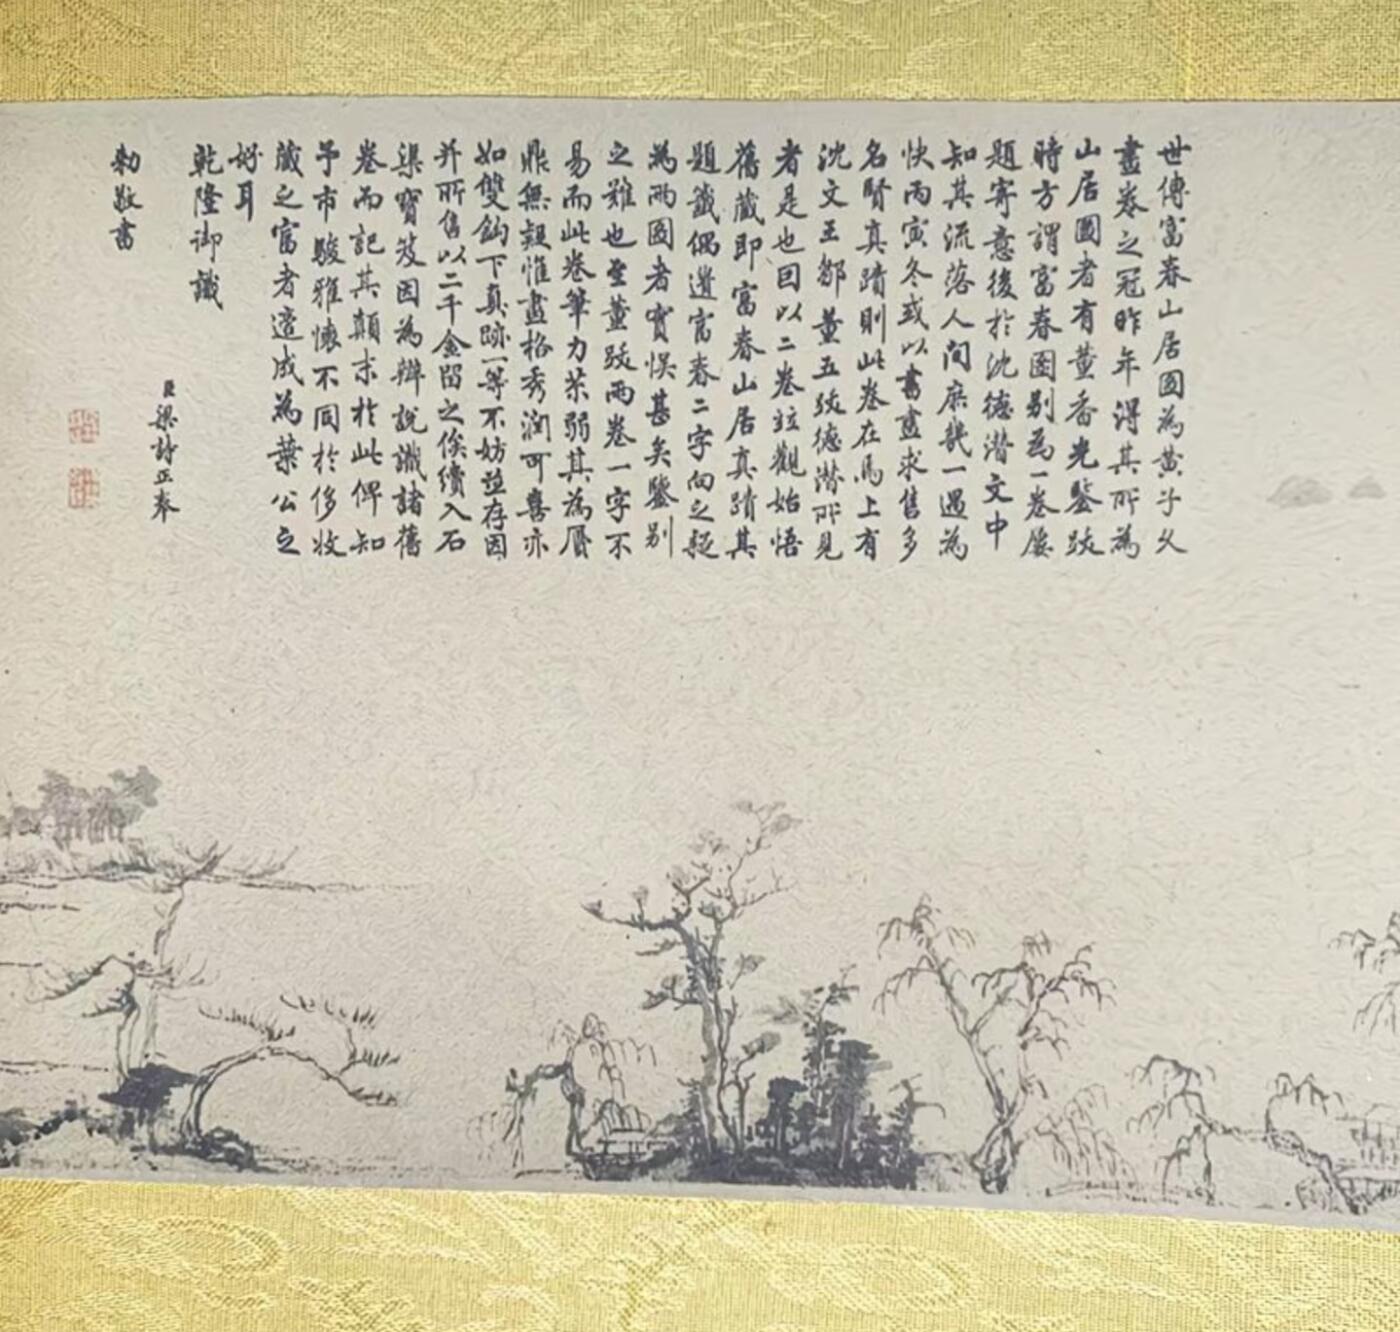 世傳富春山居圖為黃子久
畫卷之冠昨年得其所為
山居圖者有董香光鑒跋
時方謂富春圖別為一卷屢
題寄意後於沈德潛文中
知其流落人間庶幾一遇為
快丙寅冬或以書畫求售多
名賢真蹟則此卷在焉上有
沈文王鄒董五跋德潛所見
者是也因以二卷竝觀始悟
舊藏即富春山居真蹟其
題籤偶遺富春二字向之疑
為兩圖者實悞甚矣鑒別
之難也至董跋兩卷一字不
易而此卷筆力苶弱其為贋
鼎無疑惟畫格秀潤可喜亦
如雙鈎下真跡一等不妨並存因
并所售以二千金留之俟續入石
渠寶笈因為辯說識諸舊
卷而記其顛末於此俾知
予市駿雅懷不同於侈收
藏之富者遮成為葉公之
好耳
乾隆御識
臣梁詩正奉
勅敬書